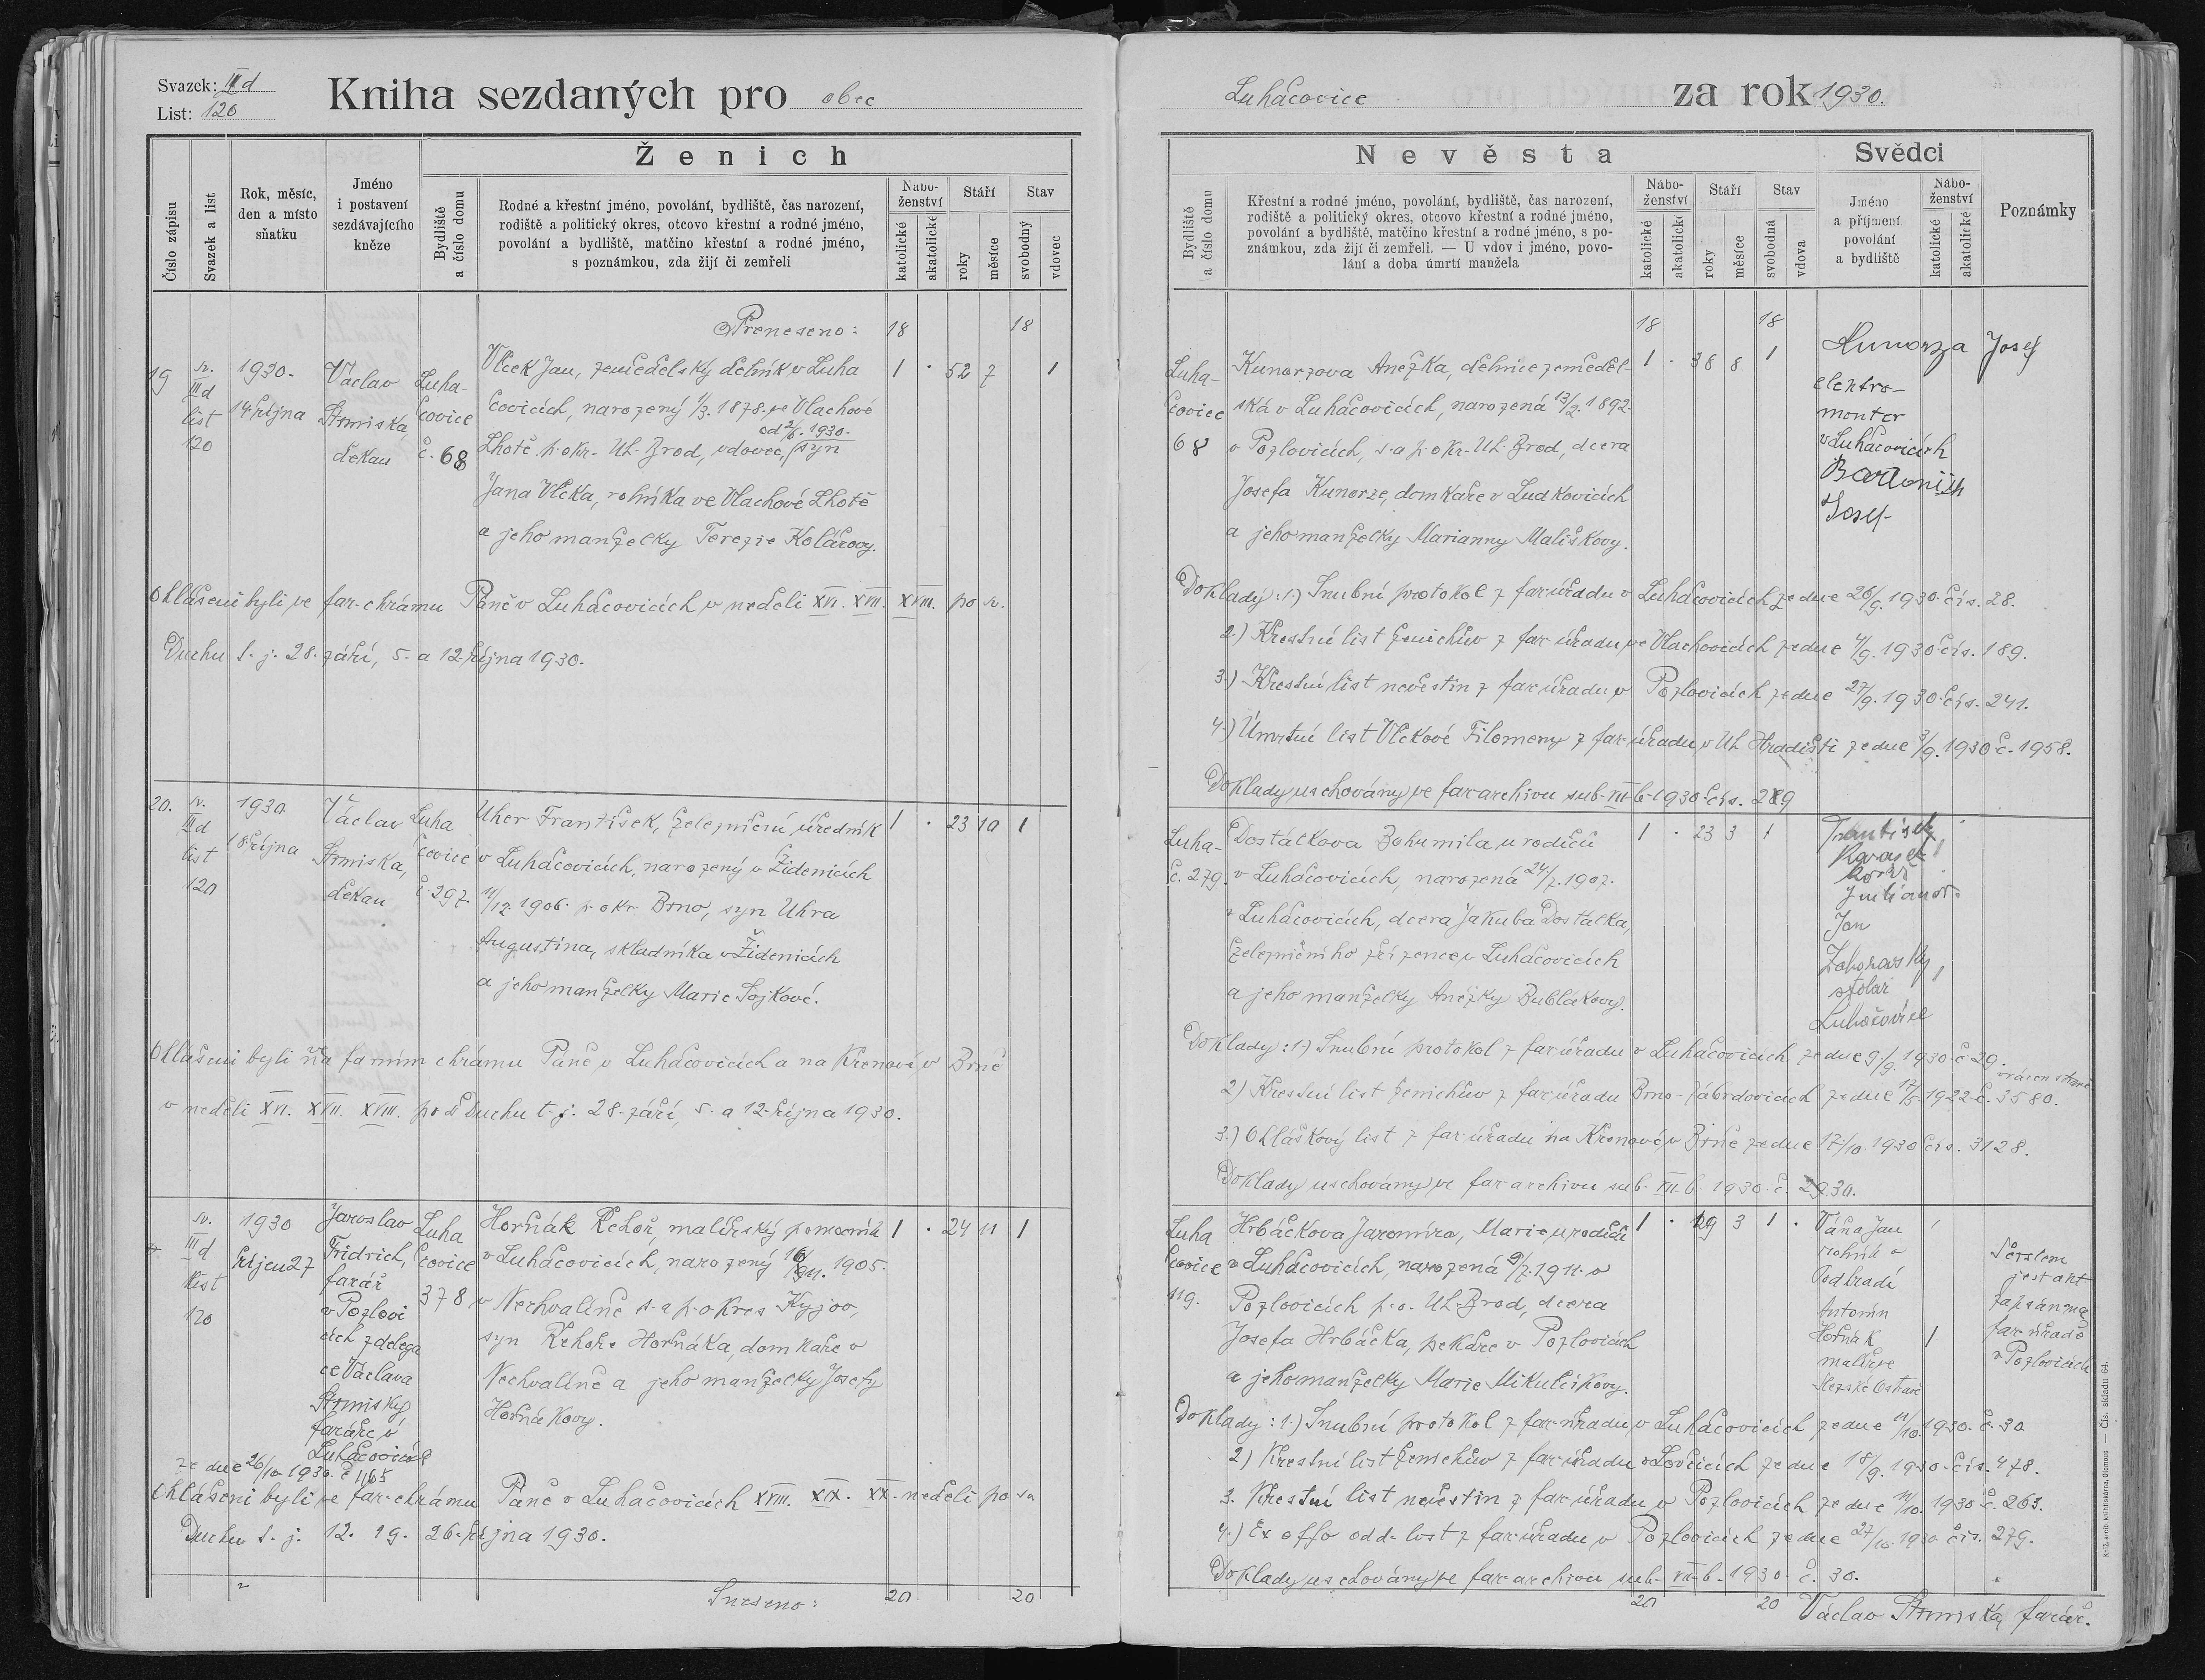 Svazek: III d
List: 120
Kniha sezdaných pro obec
Ženich
Číslo zápisu
Svazek a list
Rok, měsíc,
den a místo
sňatku
Jméno
i postavení
sezdávajícího
kněze
Bydliště
a číslo domu
Rodné a křestní jméno, povolání, bydliště, čas narození,
rodiště a politický okres, otcovo křestní a rodné jméno,
povolání a bydliště, matčino křestní a rodné jméno,
s poznámkou, zda žijí či zemřeli
Nábo-
ženství
katolické
akatolické
Stáří
roky
měsíce
Stav
svobodný
vdovec
Přeneseno: 18 18
19
sv.
III d
list
120
1930.
14. října
Václav
Strmiska,
děkan
Luha-
čovice
č. 68
Vlček Jan, zemědělský dělník v Luha
čovicích, narozený 1/3. 1878. ve Vlachové
od 2/6. 1930.
Lhotě p. okr. Uh. Brod, vdovec, syn
Jana Vlčka, rolníka ve Vlachové Lhotě
a jeho manželky Terezie Kolářovy.
1 . 52 7 1
Ohlášeni byli ve far. chrámu Páně v Luhačovicích v neděli XVI. XVII. XVIII. po sv.
Duchu t. j. 28. září, 5. a 12. října 1930.
20.
sv.
III d
list
120
1930
18. října
Václav
Strmiska,
děkan
Luha
čovice
č. 297.
Uher František, železniční úředník
v Luhačovicích, narozený v Židenicích
11/12. 1906. p. okr. Brno, syn Uhra
Augustina, skladníka v Židenicích
a jeho manželky Marie Sojkové.
1 . 23 10 1
Ohlášeni byli ve farním chrámu Páně v Luhačovicích a na Křenové v Brně
v neděli XVI. XVII. XVIII. po D Duchu t. j. 28. září, 5. a 12. října 1930.
sv.
III d
list
120
1930
říjen 27
Jaroslav
Fridrich,
farář
v Pozlovi
cích z delega
ce Václava
Strmisky
faráře v
Luhačovicích
ze dne 26/10. 1930. č. 1165
Luha
čovice
378
Horňák Řehoř, malířský pomocník
v Luhačovicích, narozený 1905.
v Nechvalíně s. a p. okres Kyjov,
syn Řehoře Horňáka, domkáře v
Nechvalíně a jeho manželky Josefy
Horňákovy.
1 . 24 11 1
Ohlášeni byli ve far. chrámu Páně v Luhačovicích XVIII. XIX. XX. neděli po sv
Duchu t. j. 12. 19. 26. října 1930.
Sneseno: 20 20
Luhačovice za rok 1930.
Nevěsta
Bydliště
a číslo domu
Křestní a rodné jméno, povolání, bydliště, čas narození,
rodiště a politický okres, otcovo křestní a rodné jméno,
povolání a bydliště, matčino křestní a rodné jméno, s po-
známkou, zda žijí či zemřeli. — U vdov i jméno, povo-
lání a doba úmrtí manžela
Nábo-
ženství
katolické
akatolické
Stáří
roky
měsíce
Stav
svobodná
vdova
Svědci
Jméno
a příjmení
povolání
a bydliště
Nábo-
ženství
katolické
akatolické
Poznámky
18 18
Luha-
čovice
68
Kunorzova Anežka, dělnice zeměděl-
ská v Luhačovicích, narozená 13/2. 1892.
v Pozlovicích, s. a p. okr. Uh. Brod, dcera
Josefa Kunorze, domkaře v Ludkovicích
a jeho manželky Marianny Mališkovy.
1 . 38 8 1
Kunorza Josef
elektro-
montor
v Luhačovicích
Josef
Doklady: 1.) Snubní protokol z far. úřadu v Luhačovicích ze dne 26/9. 1930. čís. 28.
2.) Křestní list ženichův z far. úřadu ve Vlachovicích ze dne 4/9. 1930. čís. 189.
3.) Křestní list nevěstin z far. úřadu v Pozlovicích ze dne 27/9. 1930. čís. 241.
4.) Úmrtní list Vlčkové Filomeny z far. úřadu v Uh. Hradišti ze dne 3/9. 1930 č. 1958.
Doklady uschovány ve far. archivu sub. VII. b. 1930. čís.
Luha-
č. 279.
Dostálkova Bohumila u rodičů
v Luhačovicích, narozená 24/7. 1907.
v Luhačovicích, dcera Jakuba Dostálka,
železničního zřízence v Luhačovicích
a jeho manželky Anežky Bublákovy.
1 . 23 3 1
František
Karásek
Jan
Záhorovský,
stolař
Luhačovice
Doklady: 1.) Snubní protokol z far. úřadu v Luhačovicích ze dne 9/9. 1930. č. 29.
vrácen straně
2.) Křestní list ženichův z far. úřadu Brno-Zábrdovicích ze dne 17/5. 1922. č. 3580.
3.) Ohláškový list z far. úřadu na Křenové v Brně ze dne 17/10. 1930 čís. 3128.
Doklady uschovány ve far. archivu sub. VII. b. 1930. č.
Luha
čovice
119.
Hrbáčkova Jaromíra, Marie u rodičů
v Luhačovicích, narozená 9/7. 1911. v
Pozlovicích p. o. Uh. Brod, dcera
Josefa Hrbáčka, pekáře v Pozlovicích
a jeho manželky Marie Mikulčíkovy.
1 . 19 3 1 .
Váňa Jan
rolník v
Podhradí
Antonín
Horňák
malíř ve
Slezské Ostravě
1
jest akt
zapsán na
far. úřadě
v Pozlovicích
Doklady: 1.) Snubní protokol z far. úřadu v Luhačovicích ze dne 11/10. 1930. č. 30
2) Křestní list ženichův z far. úřadu v Lovčicích ze dne 18/9. 1930. čís. 478.
3. Křestní list nevěstin z far. úřadu v Pozlovicích ze dne 11/10. 1930. č. 263.
4.) Ex offo odd. list z far. úřadu v Pozlovicích ze dne 27/10. 1930. čís. 279.
Doklady uschovány ve far. archivu sub. VII. b. 1930. č. 30.
20 20 Václav Strmiska, farář.
Knih. arcib. knihtiskárna, Olomouc — Čís. skladu 64.